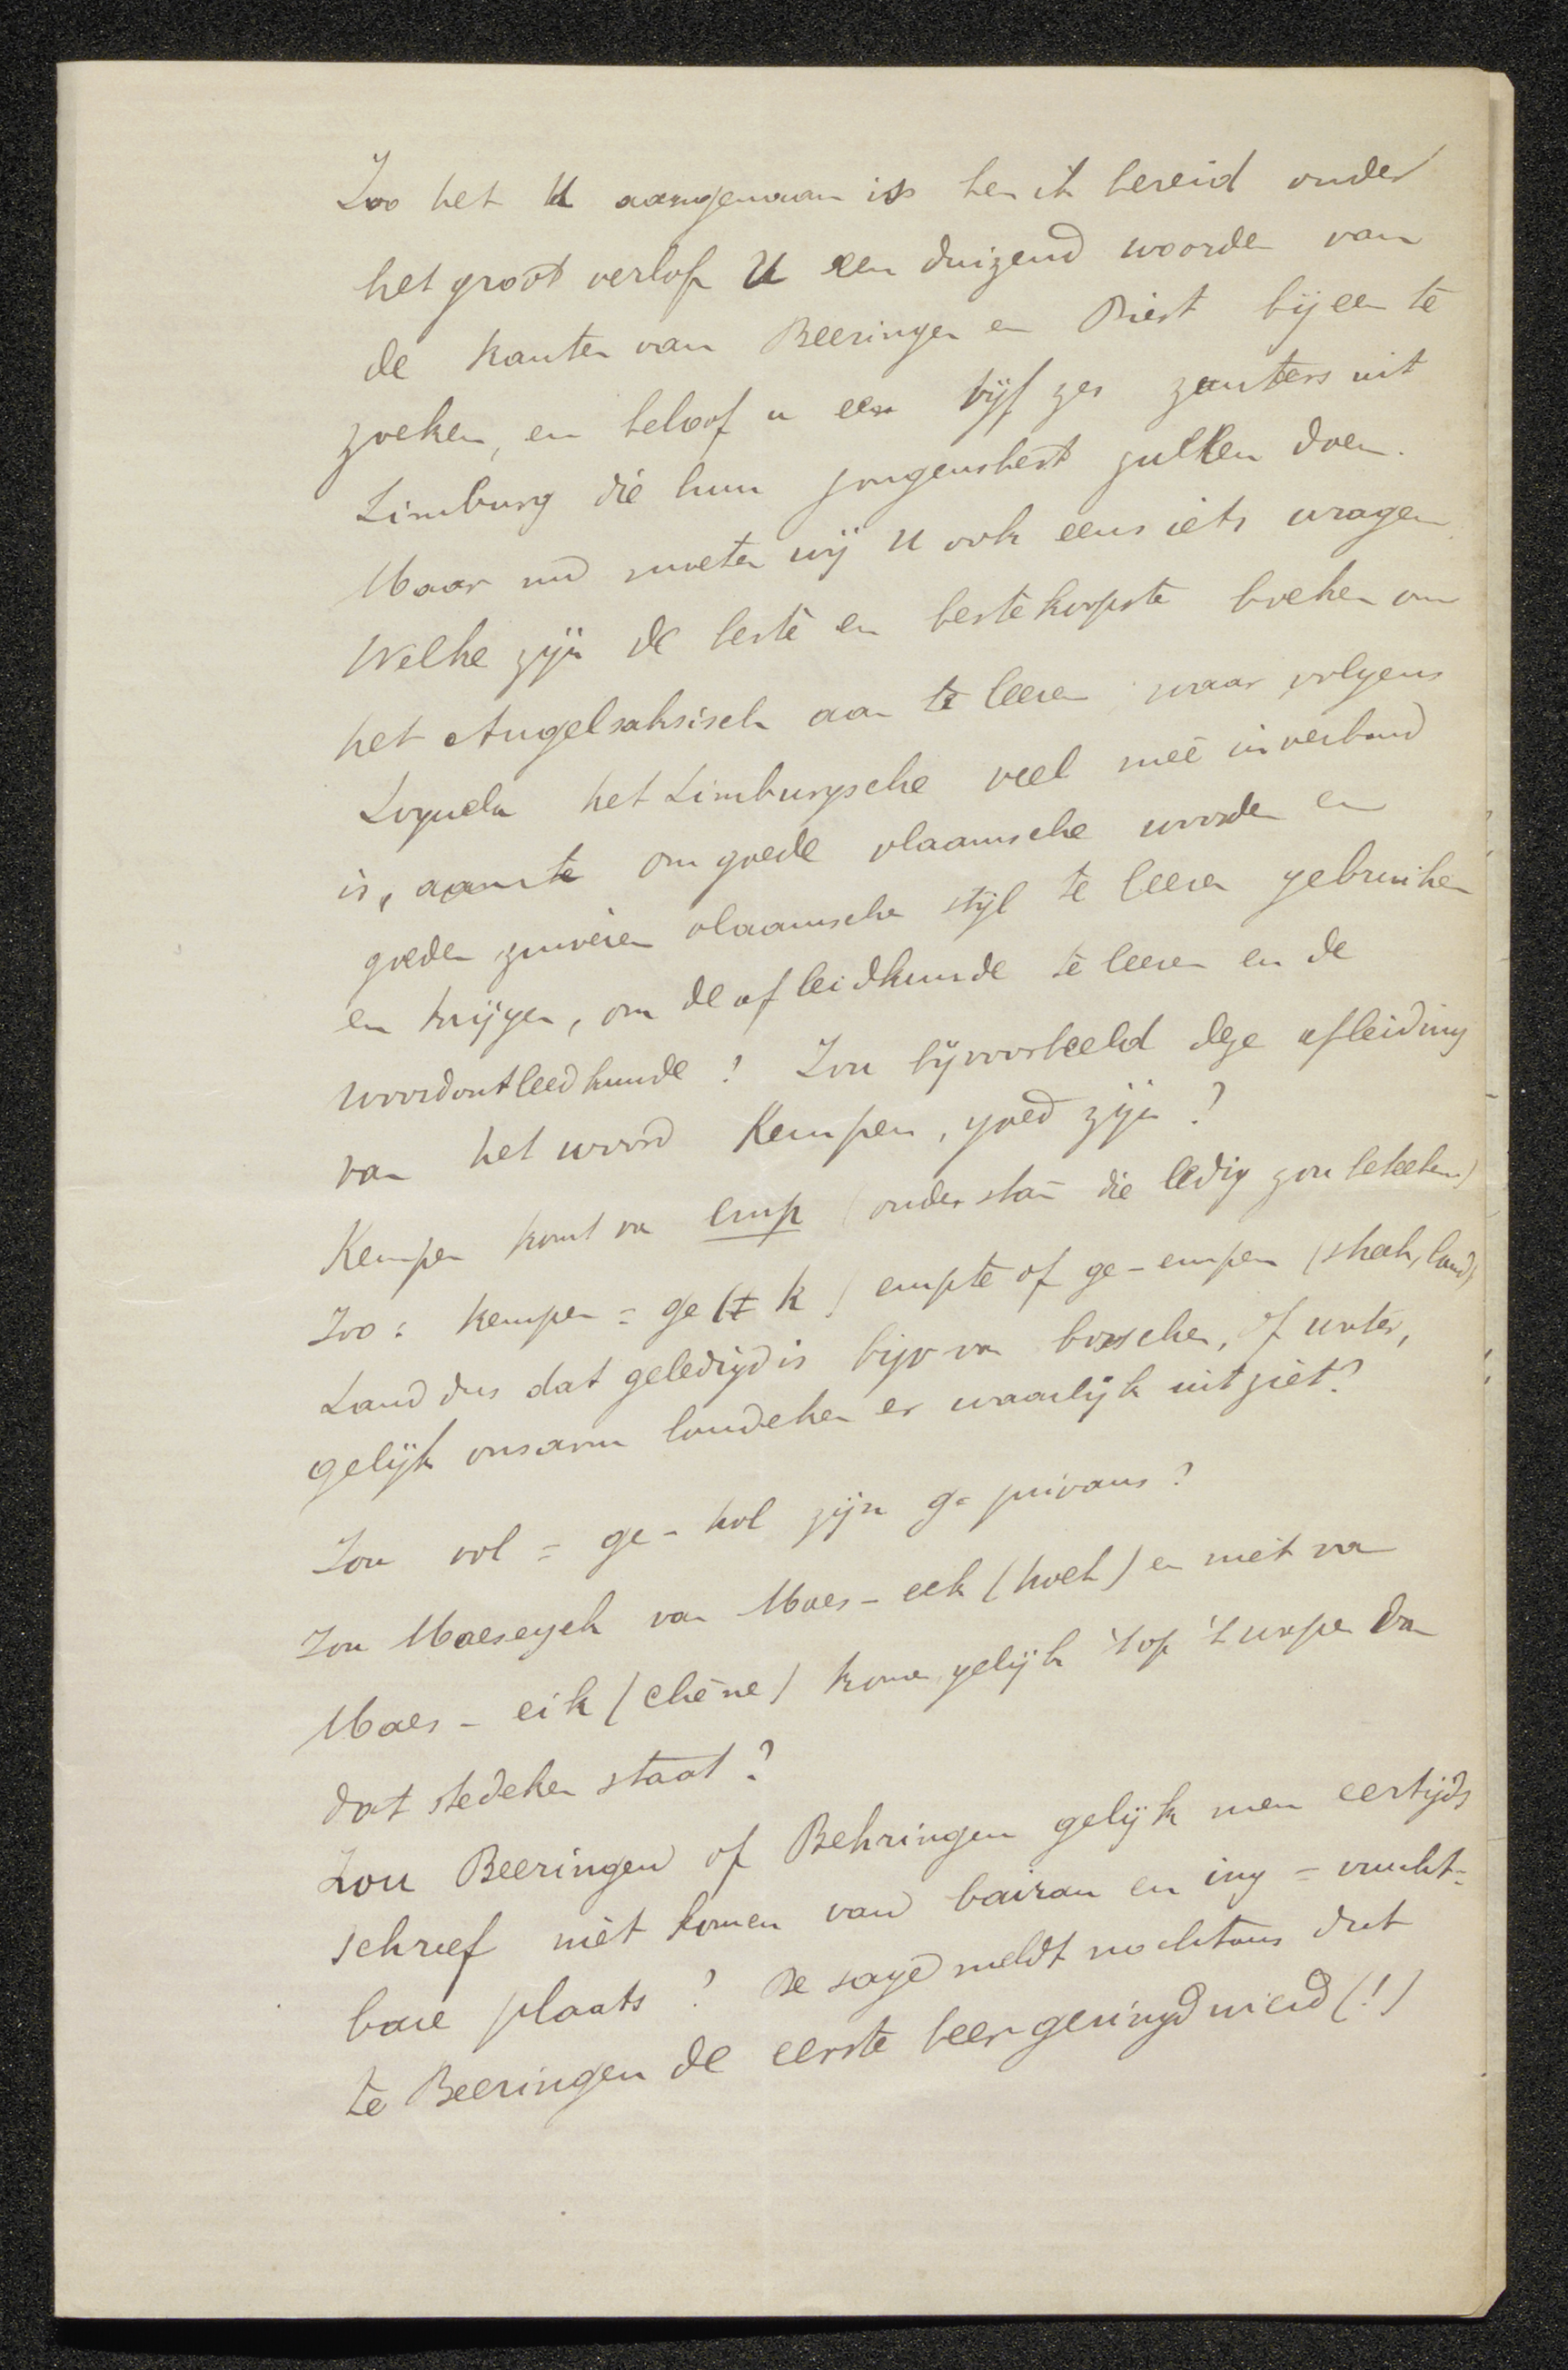 Zoo het U aangenaam is ben ik bereid onder
het groot verlof U een duizend woorden van
de kanten van Beeringen en Diest bijeen te
zoeken, en beloof u een vijf zes zanters uit
Limburg die hun jongensbest zullen doen.
Maar nu moeten wij U ook eens iets vragen
Welke zijn de beste en bestekoopste boeken om
het Angelsaksisch aan te leeren waar volgens
Loquela het Limburgsche veel mee in verband
is, om goede vlaamsche woorden en
goeden zuiveren vlaamschen stijl te leeren gebruiken
en krijgen, om de afleidkunde te leeren en de
woordontleedkunde? Zou bijvoorbeeld deze afleiding
van het woord Kempen, goed zijn?
Kempen komt van emp (onder stam die ledig zou beteeken)
Zoo: kempen = ge (± k) empte of ge-empen (streek, land)
Land dus dat geledigd is bijv van bosschen, of water,
gelijk onsarm landeken er waarlijk uitziet?
Zou vol = ge-hol zijn ge privans?
Zou Maeseyck van Maes-eek (hoek) en niet van
Maes-eik (chêne) komen gelijk 't op 't wapen van
dat stedeken staat?
Zou Beeringen of Behringen gelijk men eertijds
schreef niet komen van bairan en ing = vrucht-
bare plaats? De sage meldt nochtans dat
te Beeringen de eerste beer geringd wierd (!)